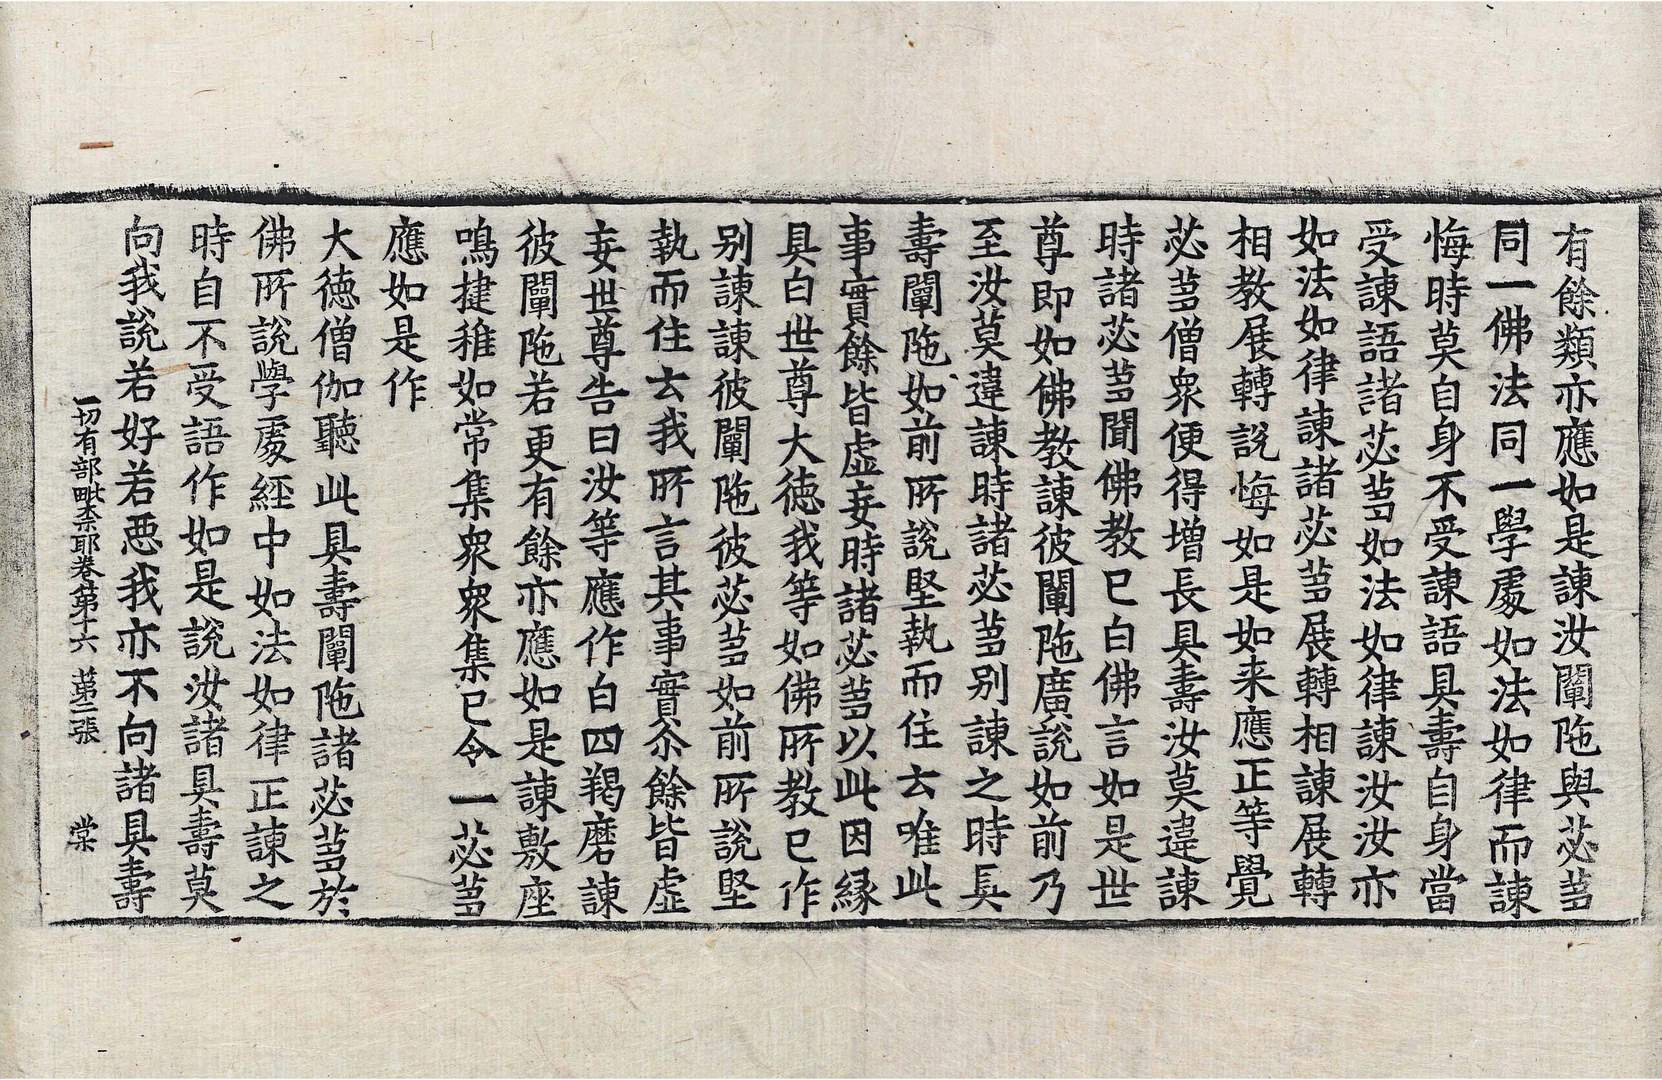 有餘類亦應如是諫汝闡陁與苾芻
同一佛法同一學處如法如律而諫
悔時莫自身不受諫語具壽自身當
受諫語諸苾芻如法如律諫汝汝亦
如法如律諫諸苾芻展轉相諫展轉
相教展轉說悔如是如来應正等覺
苾芻僧衆便得增長具壽汝莫違諫
時諸苾芻聞佛教已白佛言如是世
尊即如佛教諫彼闡陁廣說如前乃
至汝莫違諫時諸苾芻別諫之時長
壽闡陁如前所說堅執而住去唯此
事實餘皆虛妄時諸苾芻以此因緣
具白世尊大徳我等如佛所教已作
別諫諫彼闡陁彼苾芻如前所說堅
執而住去我所言其事實尒餘皆虛
妄世尊告曰汝等應作白四羯磨諫
彼闡陁若更有餘亦應如是諫敷座
鳴揵稚如常集衆衆集已令一苾芻
應如是作
大徳僧伽聽此具壽闡陁諸苾芻於
佛所說學處經中如法如律正諫之
時自不受語作如是說汝諸具壽莫
向我說若好若悪我亦不向諸具壽
一切有部毗奈耶卷第十六 第二張 棠